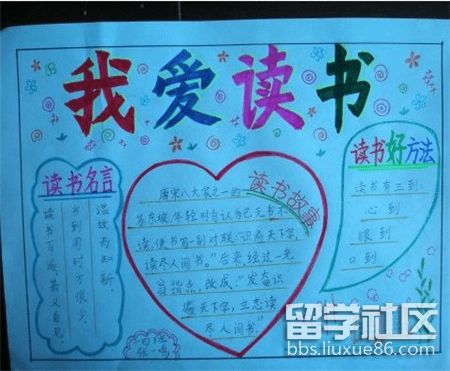 我爱读书
读书名言
温故而知新。
书到用时方恨少。
读书百遍,其义自见。
读书故事
唐宋八大家之一的
苏东坡,年轻时自认为已无书不
读,便书写一副对联"识遍天下字,
读尽人间书。"后来经过一老
翁指点,改成,"发奋识
遍天下字,立志读
尽人间书。"
读书好方法
读书有三到:
心到
眼到
口到
留学社区
bbs.liuxue86.com